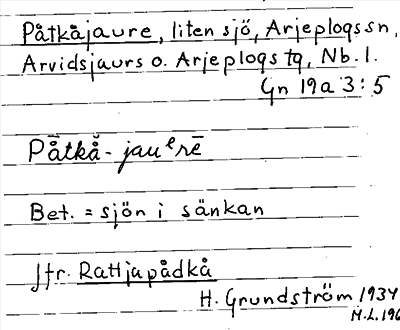 Påtkåjaure, liten sjö, Arjeplogs sn,
Arvidsjaurs o. Arjeplogs tg, Nb. l.
Gn 19a 3:5
Påtkå̆-jauᵉrē
Bet. = sjön i sänkan
Jfr. Rattjapådkå
H. Grundström 1934
M.L. 196